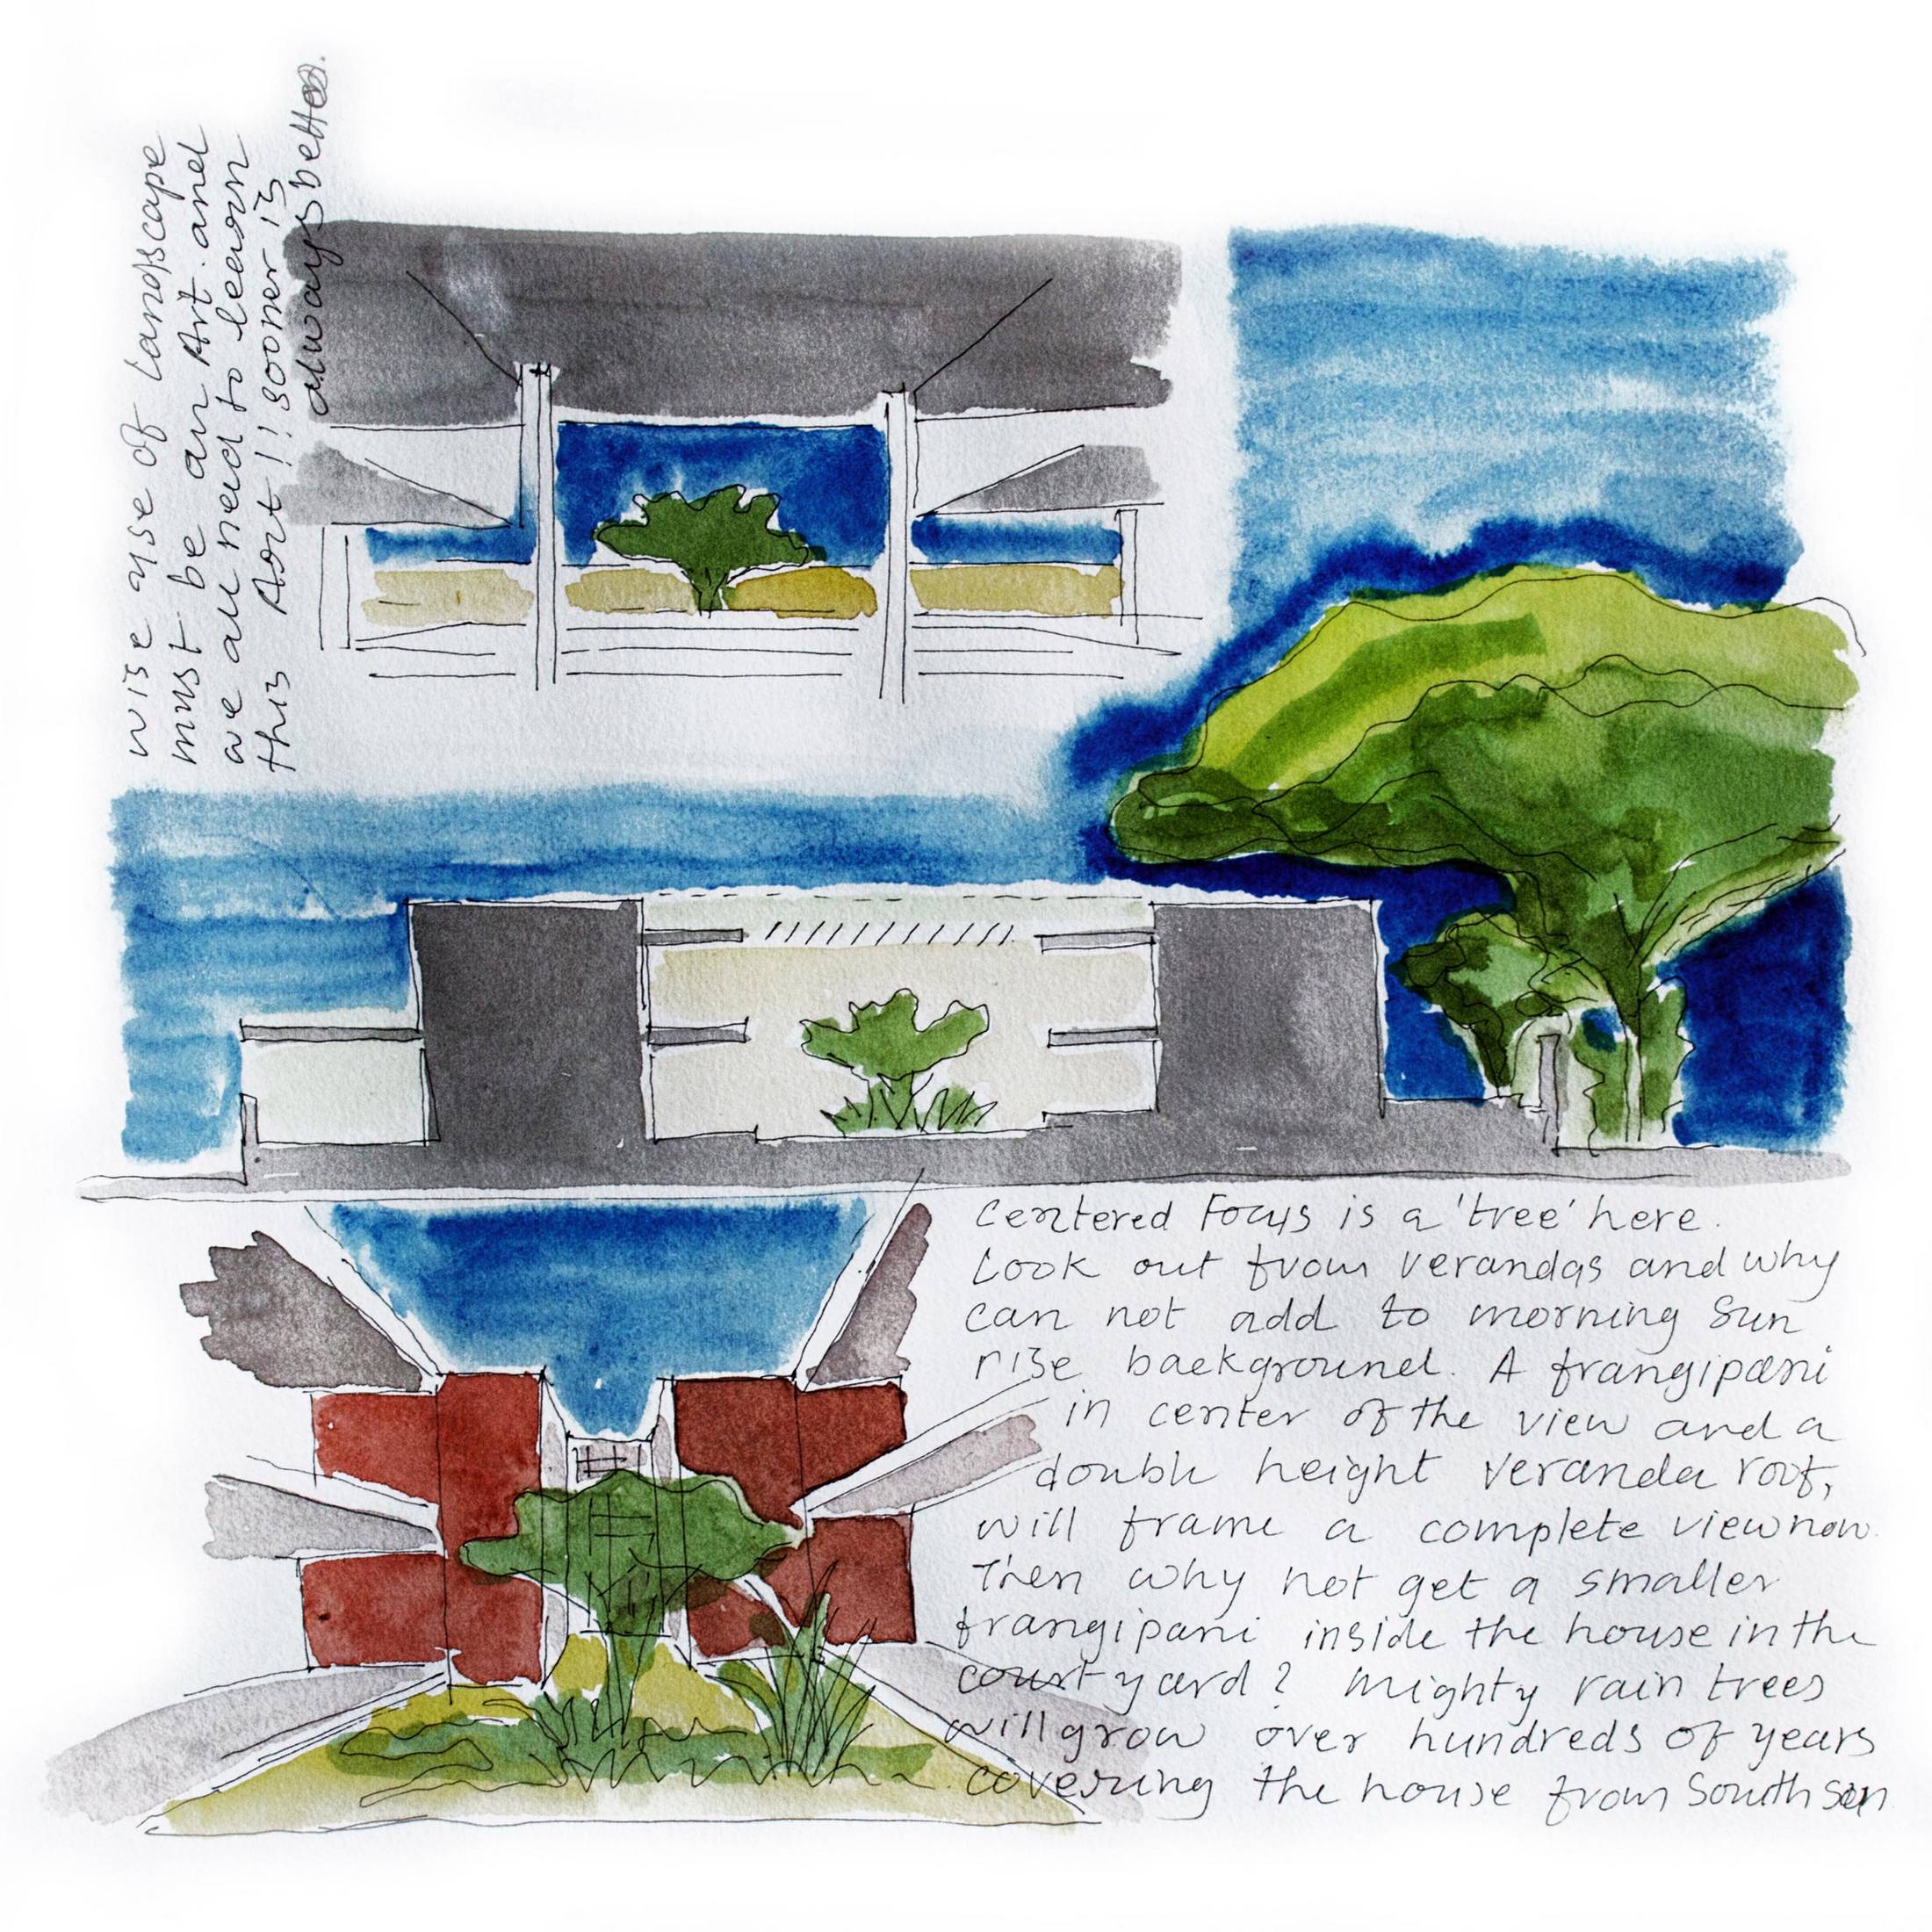 wise use of landscape
must be an Art. and
we all need to learn
this Art!! sooner is
always better.
Centered Focus is a 'tree' here.
Look out from verandas and why
can not add to morning sun
rise background. A frangipani
in center of the view and a
double height veranda roof,
will frame a complete view now.
Then why not get a smaller
frangipani inside the house in the
court yard? Mighty rain trees
will grow over hundreds of years
covering the house from South sun